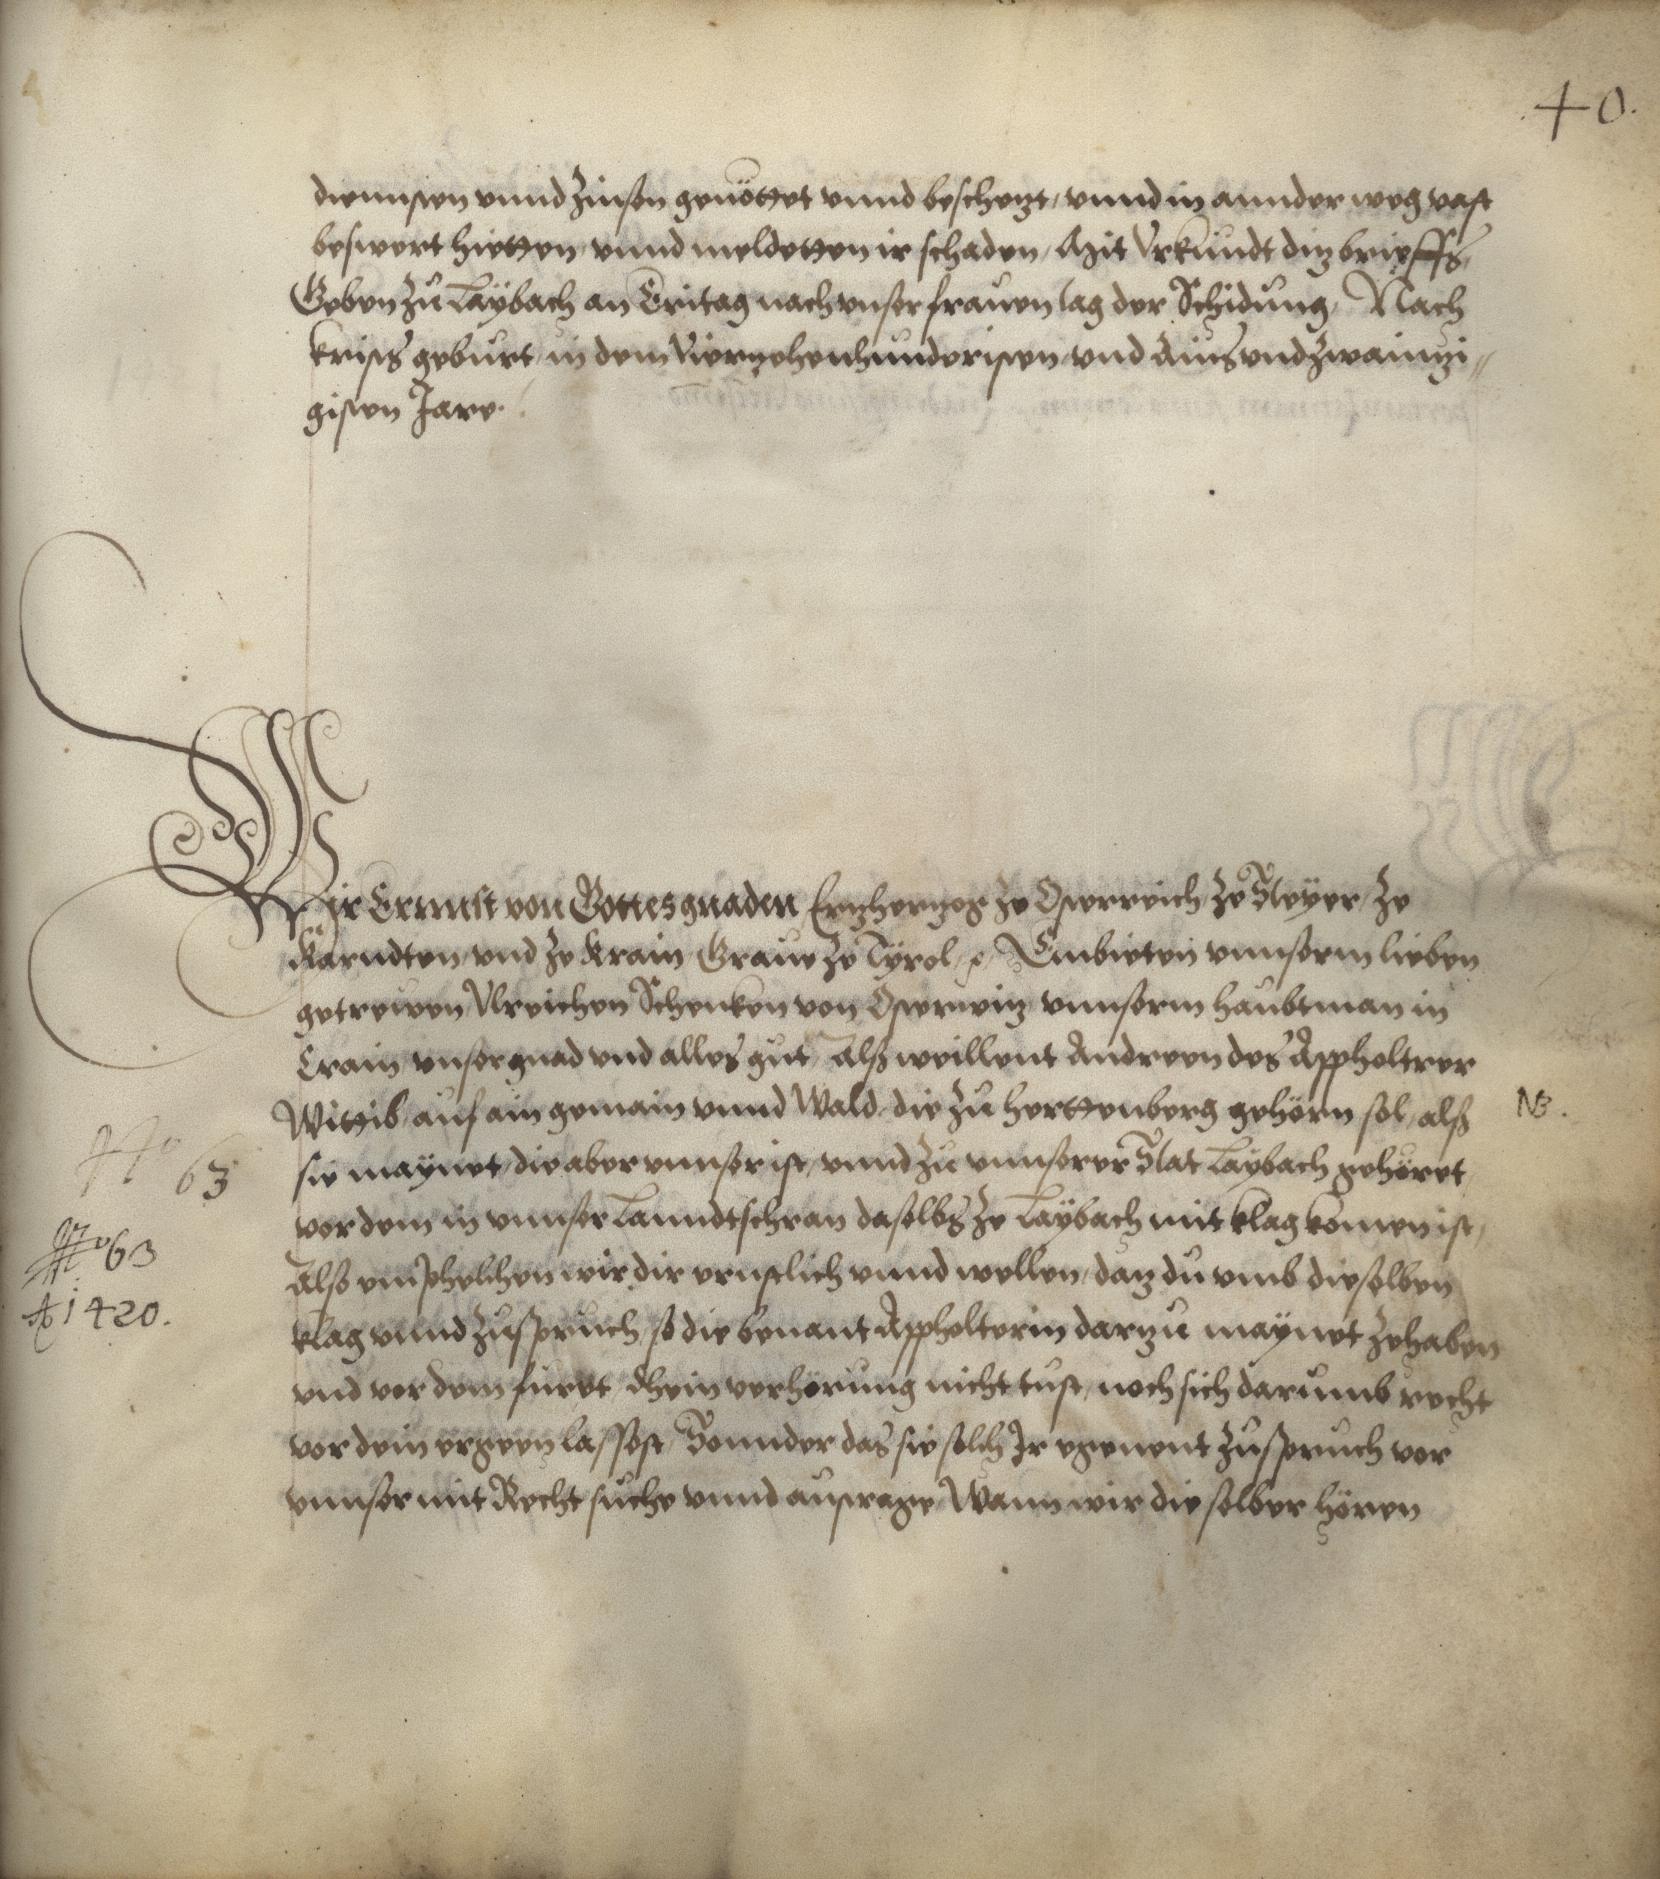 40.
diennsten vnnd Zinsen genöttet vnnd beschezt, vnnd in annder weg vast
beswert hietten, vnnd meldetten ir schaden, Mit Vrkundt diz brieffs,
Geben zu Laybach an Eritag nach vnser frauen tag der Schidung, Nach
krists geburt, in dem Vierzehenhunderisten, vnd Ains vnd zwainzi//
gisten Jare.
Wir Ernnst von Gottes gnaden Erzherzog ze Osterreich, ze Steyer, ze
Karndten, vnd ze Krain, Graue ze Tyrol, Embieten vnnserm lieben
getrewen Vlreichen Schenken von Osterwiz, vnnserm haubtman in
Crain, vnser gnad vnd alles gut, Alß weillent Andreen des Appholtrer
Wittib, auf ain gemain vnnd Wald, die zu herttenberg gehörn sol, alß
NB.
sie maÿnet, die aber vnnser ist, vnnd zu vnnserer Stat Laybach gehöret,
No 63
vor dem in vnnser Lanndtschran daselbs ze Laÿbach mit klag komen ist,
No 63
Also emphelhen wir dir ernstlich vnnd wellen, daz du vmb dieselben
Ao 1420.
klag vnnd zuspruch, so die benant Appholterin darzu maÿnet zehaben
vnd vor dem füret, dhein verhörung nicht tust, noch sich darumb recht
vor dein ergeen lassest, Sonnder das sie solch Ir egenent zuspruch vor
vnnser mit Recht suche vnnd austrage, Wann wir die selber hören